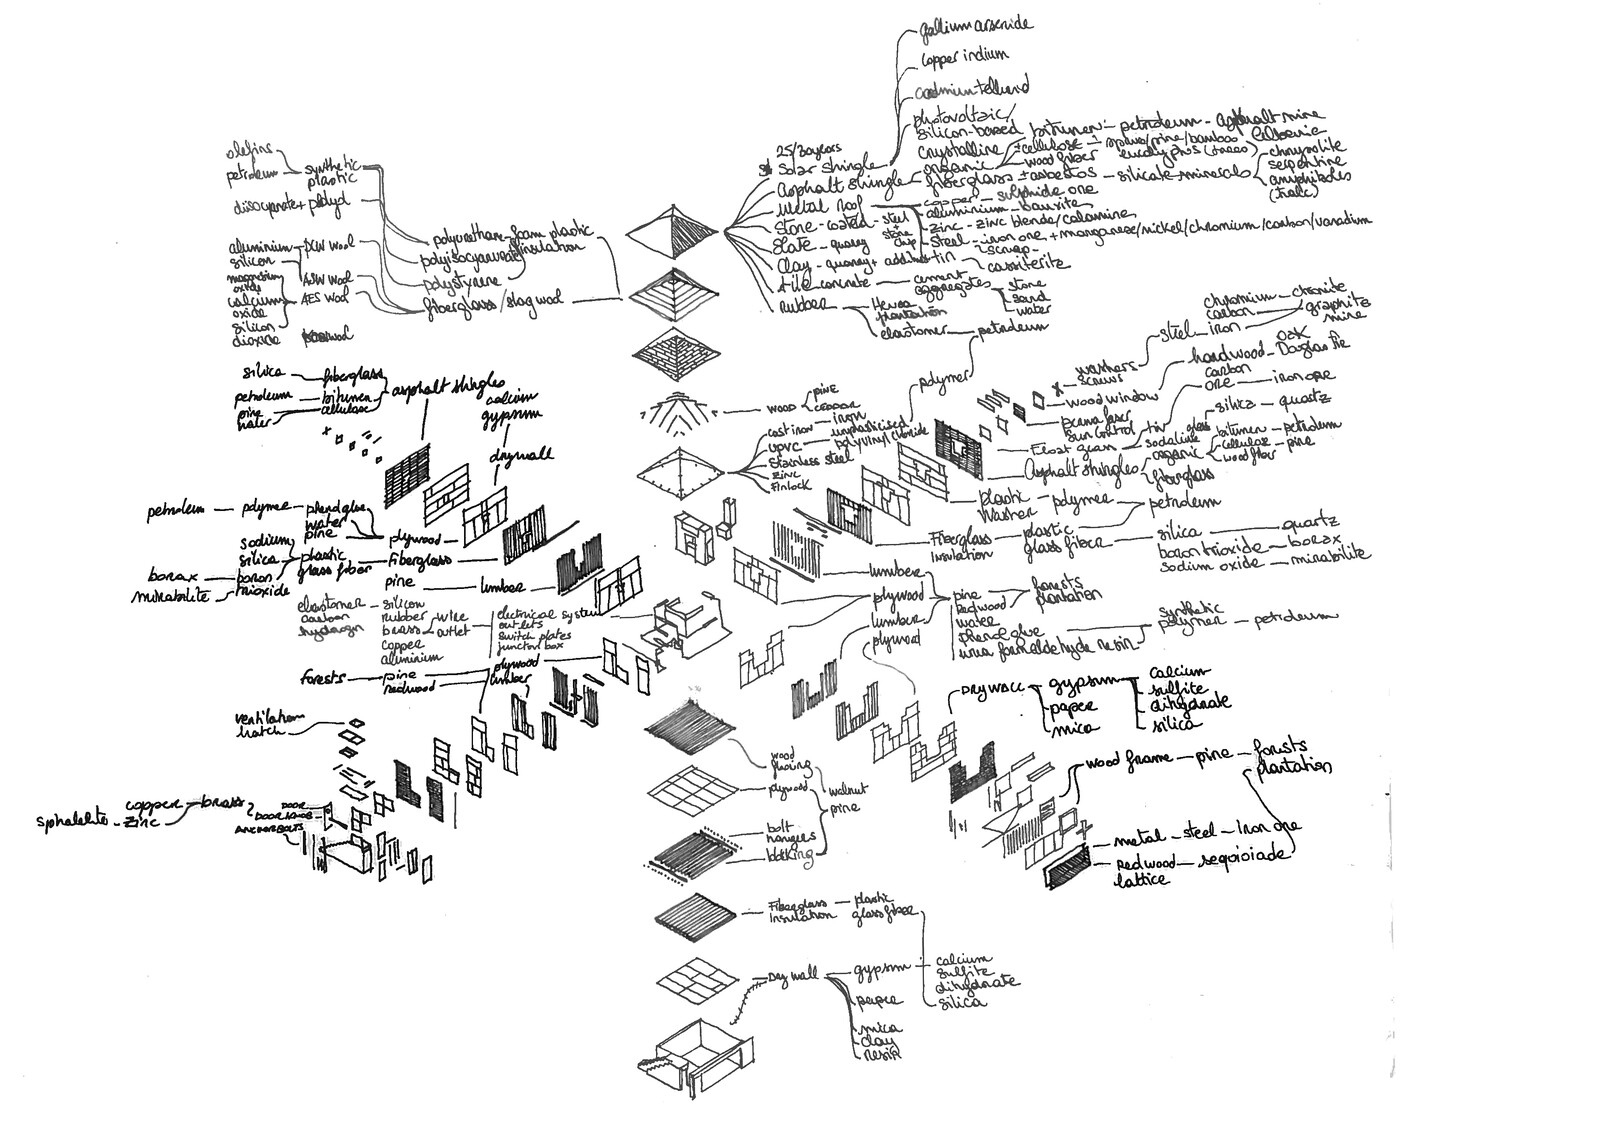 gallium arsenide
copper indium
photovoltaic/
silicon-based
crystalline
bitumen - petroleum - asphalt mine
± cellulose
wood fiber
25/30 years
Solar shingle
Asphalt shingle
organic
fiberglass ± asbestos - silicate minerals
serpentine
(talc)
Metal roof
copper - sulphide ore
aluminium - bauxite
zinc - zinc blende/calamine
steel - iron ore + manganese/nickel/chromium/carbon/vanadium
scrap
tin
cassiterite
Stone-coated - steel
+
stone
chip
Slate - quarry
Clay - quarry +
tile concrete - cement
aggregates
stone
sand
water
rubber
Hevea
plantation
elastomer - petroleum
polymer
olefins
petroleum
synthetic
plastic
polyurethane - foam plastic
insulation
polystyrene
fiberglass/slag wool
aluminium
silicon
magnesium
oxide
calcium
oxide
silicon
dioxide
AES wool
silica - fiberglass
petroleum - bitumen
pine
water
cellulose
asphalt shingles
calcium
gypsum
drywall
petroleum - polymer - phenol glue
water
pine
plywood
sodium
silica
boron
trioxide
borax
mirabilite
plastic
glass fiber
Fiberglass
pine
lumber
elastomer
carbon
hydrogen
silicon
rubber
brass
copper
aluminium
wire
outlet
electrical system
outlets
switch plates
junction box
forests - pine
redwood
plywood
lumber
ventilation
hatch
copper
zinc
brass
DOOR
DOOR KNOB
ANCHOR BOLTS
wood
pine
cast iron - iron
UPVC
unplasticised
polyvinyl chloride
Stainless steel
zinc
Finlock
washers
screws
steel
chromium
carbon
iron
graphite
mine
wood window
hardwood
oak
Douglas Fir
carbon
ore - iron ore
sun control
tin
Float glass
sodalime
glass
silica - quartz
Asphalt shingles
organic
bitumen - petroleum
cellulose - pine
wood fiber
fiberglass
plastic
Washer
polymer - petroleum
Fiberglass
insulation
plastic
glass fiber
silica - quartz
boron trioxide - borax
sodium oxide - mirabilite
lumber
plywood
lumber
plywood
pine
Redwood
water
phenol glue
urea formaldehyde resin
forests
plantation
synthetic
polymer - petroleum
DRYWALL
gypsum
paper
mica
calcium
sulfite
dihydrate
silica
wood frame - pine - forests
plantation
metal - steel - iron ore
Redwood
lattice
wood
flooring
plywood
walnut
pine
bolt
hangers
blocking
Fiberglass
Insulation
plastic
glass fiber
Dry wall
gypsum
calcium
sulfite
dihydrate
silica
paper
mica
clay
resin